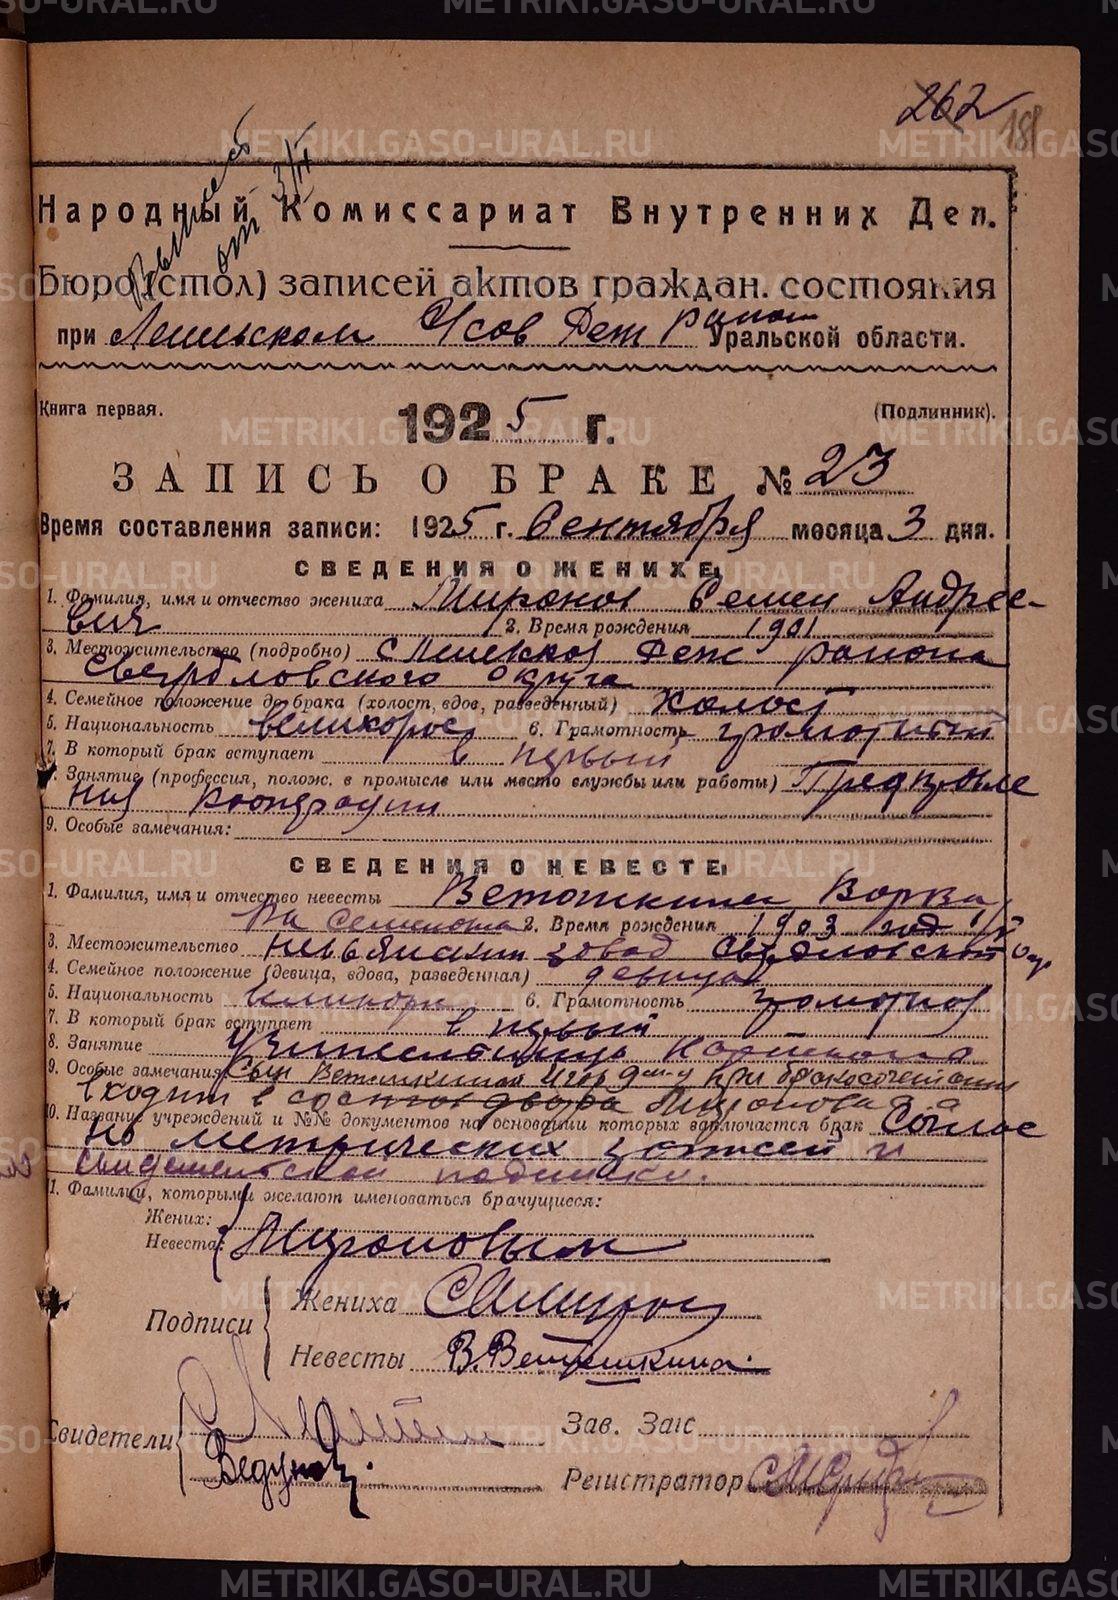 262
181
Выпись
от 3/II
Народный Комиссариат Внутренних Дел.
Бюро (стол) записей актов граждан. состояния
при Уральской области.
Книга первая. (Подлинник).
1925 г.
ЗАПИСЬ О БРАКЕ № 23
Время составления записи: 1925 г. Сентября месяца 3 дня.
СВЕДЕНИЯ О ЖЕНИХЕ.
1. Фамилия, имя и отчество жениха Миронов Семен Андрее-
вич 2. Время рождения 1901
3. Местожительство (подробно) района
Свердловского округа
4. Семейное положение до брака (холост, вдов, разведенный) холост
5. Национальность великорос 6. Грамотность грамотный
7. В который брак вступает в первый
8. Занятие (профессия, полож. в промысле или место службы или работы) Предправле
ния кооперации
9. Особые замечания:
СВЕДЕНИЯ О НЕВЕСТЕ.
1. Фамилия, имя и отчество невесты Ветошкина Варва
ра Семенова 2. Время рождения 1903 год
3. Местожительство Невьянский завод Свердловской Окр
4. Семейное положение (девица, вдова, разведенная) девица
5. Национальность великорос 6. Грамотность грамотная
7. В который брак вступает в первый
8. Занятие учительница
9. Особые замечания Сын Ветошкиной при бракосочетании
входит в состав двора Миронова
10. Название учреждений и №№ документов на основании которых заключается брак Соглас
но метрических записей и
свидетельской подписки.
11. Фамилии, которыми желают именоваться брачущиеся:
Жених:
Невеста: Мироновым
Подписи Жениха САМиронов
Невесты В. Ветошкина.
Свидетели
Зав. Загс
Регистратор
METRIKI.GASO-URAL.RU